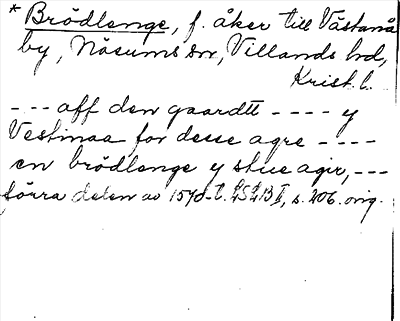 * Brödlenge, f. åker till Västanå
by, Näsums sn, Villands hd,
Krist. l.
--- aff den gaardtt ---- y
Vestinaa for desse agre ----
en brödlenge y stue agir, ---
förra delen av 1570-t. LSLB II, s. 206. orig.